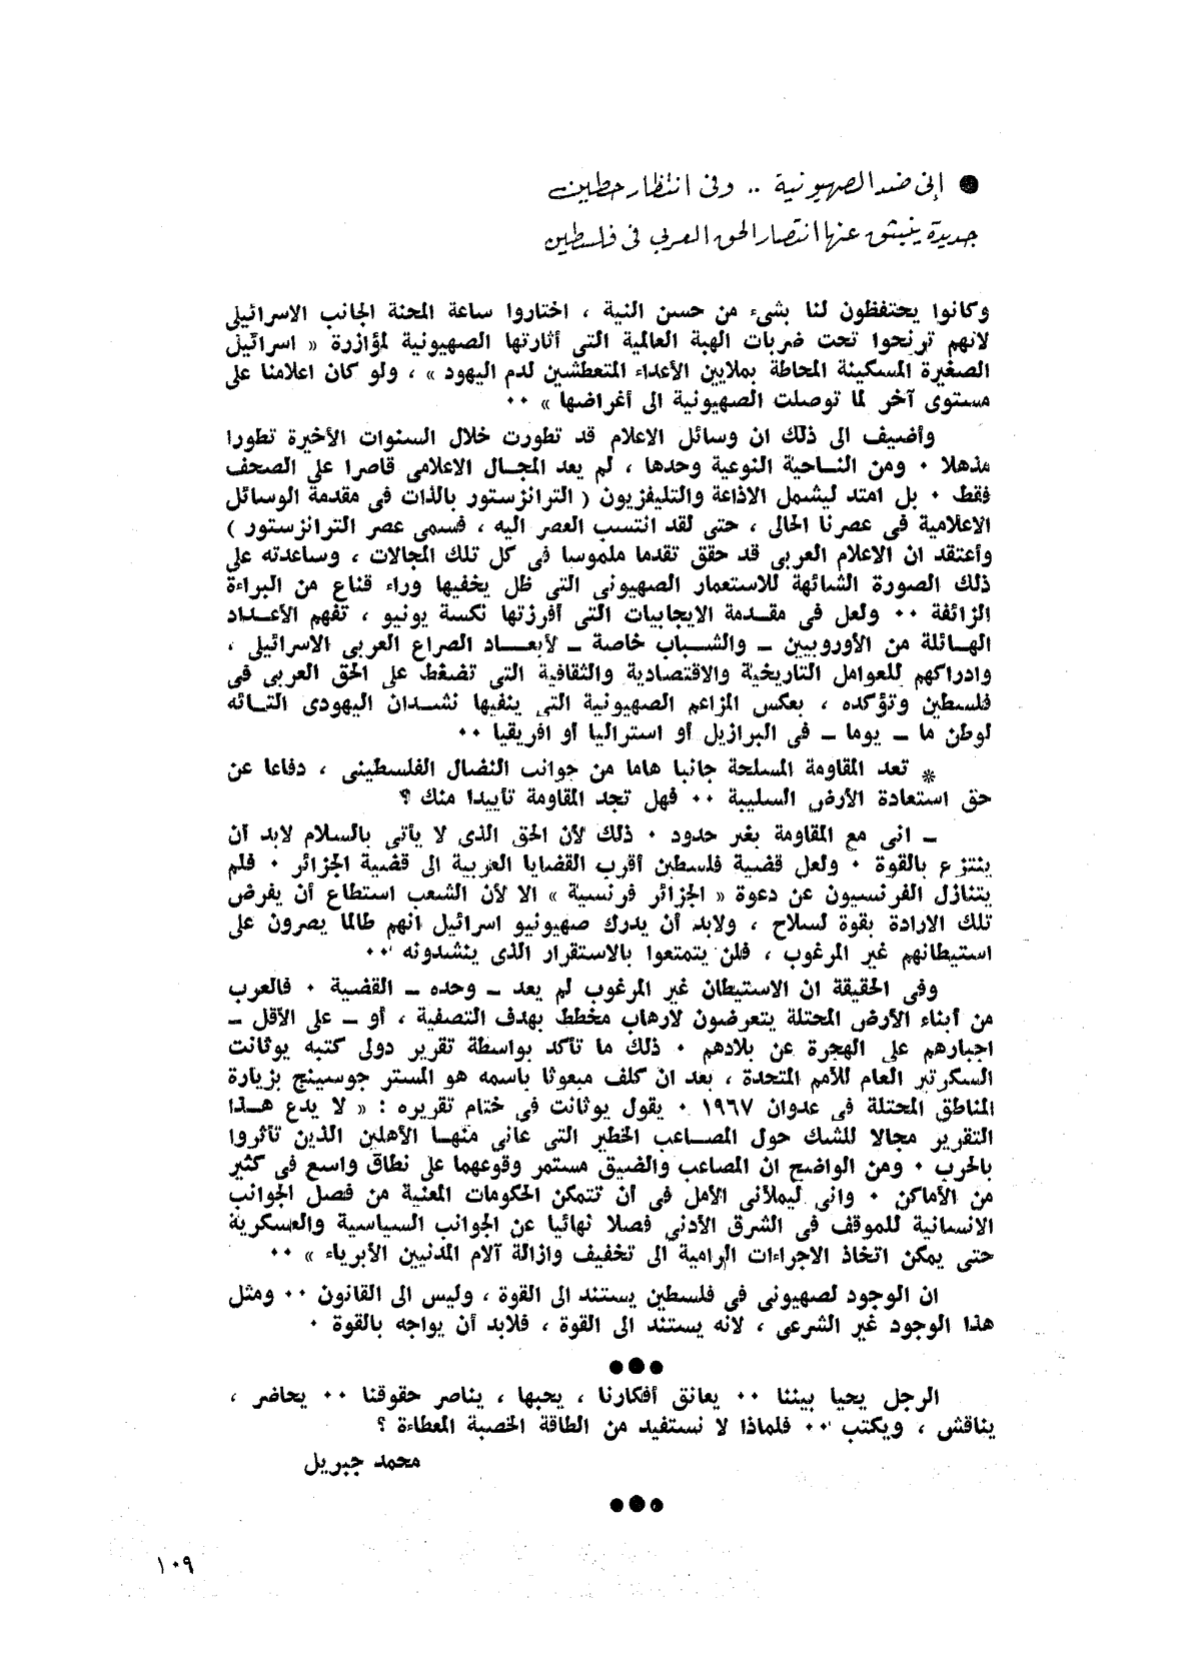 ● إنى ضد الصهيونية .. وفى انتظار حطين
جديدة ينبثق عنها انتصار الحق العربى فى فلسطين
وكانوا يحتفظون لنا بشىء من حسن النية ، اختاروا ساعة المحنة الجانب الاسرائيلى
لانهم ترنحوا تحت ضربات الهبة العالمية التى أثارتها الصهيونية لمؤازرة « اسرائيل
الصغيرة المسكينة المحاطة بملايين الأعداء المتعطشين لدم اليهود » ، ولو كان اعلامنا على
مستوى آخر لما توصلت الصهيونية الى أغراضها » ٠٠
وأضيف الى ذلك ان وسائل الاعلام قد تطورت خلال السنوات الأخيرة تطورا
مذهلا ٠ ومن الناحية النوعية وحدها ، لم يعد المجال الاعلامى قاصرا على الصحف
فقط ٠ بل امتد ليشمل الاذاعة والتليفزيون ( الترانزستور بالذات فى مقدمة الوسائل
الاعلامية فى عصرنا الحالى ، حتى لقد انتسب العصر اليه ، فسمى عصر الترانزستور )
وأعتقد ان الاعلام العربى قد حقق تقدما ملموسا فى كل تلك المجالات ، وساعدته على
ذلك الصورة الشائهة للاستعمار الصهيونى التى ظل يخفيها وراء قناع من البراءة
الزائفة ٠٠ ولعل فى مقدمة الايجابيات التى أفرزتها نكسة يونيو ، تفهم الأعداد
الهائلة من الأوروبيين ـ والشباب خاصة ـ لأبعاد الصراع العربى الاسرائيلى ،
وادراكهم للعوامل التاريخية والاقتصادية والثقافية التى تضغط على الحق العربى فى
فلسطين وتؤكده ، بعكس المزاعم الصهيونية التى ينفيها نشدان اليهودى التائه
لوطن ما ـ يوما ـ فى البرازيل أو استراليا أو افريقيا ٠٠
* تعد المقاومة المسلحة جانبا هاما من جوانب النضال الفلسطينى ، دفاعا عن
حق استعادة الأرض السليبة ٠٠ فهل تجد المقاومة تأييدا منك ؟
ـ انى مع المقاومة بغير حدود ٠ ذلك لأن الحق الذى لا يأتى بالسلام لابد أن
ينتزع بالقوة ٠ ولعل قضية فلسطين أقرب القضايا العربية الى قضية الجزائر ٠ فلم
يتنازل الفرنسيون عن دعوة « الجزائر فرنسية » الا لأن الشعب استطاع أن يفرض
تلك الارادة بقوة لسلاح ، ولابد أن يدرك صهيونيو اسرائيل أنهم طالما يصرون على
استيطانهم غير المرغوب ، فلن يتمتعوا بالاستقرار الذى ينشدونه ٠٠
وفى الحقيقة ان الاستيطان غير المرغوب لم يعد ـ وحده ـ القضية ٠ فالعرب
من أبناء الأرض المحتلة يتعرضون لارهاب مخطط بهدف التصفية ، أو ـ على الأقل ـ
اجبارهم على الهجرة عن بلادهم ٠ ذلك ما تأكد بواسطة تقرير دولى كتبه يوثانت
السكرتير العام للأمم المتحدة ، بعد ان كلف مبعوثا باسمه هو المستر جوسينج بزيارة
المناطق المحتلة فى عدوان ١٩٦٧ ٠ يقول يوثانت فى ختام تقريره : « لا يدع هذا
التقرير مجالا للشك حول المصاعب الخطير التى عانى منها الأهلين الذين تأثروا
بالحرب ٠ ومن الواضح ان المصاعب والضيق مستمر وقوعهما على نطاق واسع فى كثير
من الأماكن ٠ وانى ليملأنى الأمل فى أن تتمكن الحكومات المعنية من فصل الجوانب
الانسانية للموقف فى الشرق الأدنى فصلا نهائيا عن الجوانب السياسية والعسكرية
حتى يمكن اتخاذ الاجراءات الرامية الى تخفيف وازالة آلام المدنيين الأبرياء » ٠٠
ان الوجود لصهيونى فى فلسطين يستند الى القوة ، وليس الى القانون ٠٠ ومثل
هذا الوجود غير الشرعى ، لانه يستند الى القوة ، فلابد أن يواجه بالقوة ٠
●●●
الرجل يحيا بيننا ٠٠ يعانق أفكارنا ، يحبها ، يناصر حقوقنا ٠٠ يحاضر ،
يناقش ، ويكتب ٠٠ فلماذا لا نستفيد من الطاقة الخصبة المعطاءة ؟
محمد جبريل
●●●
١٠٩